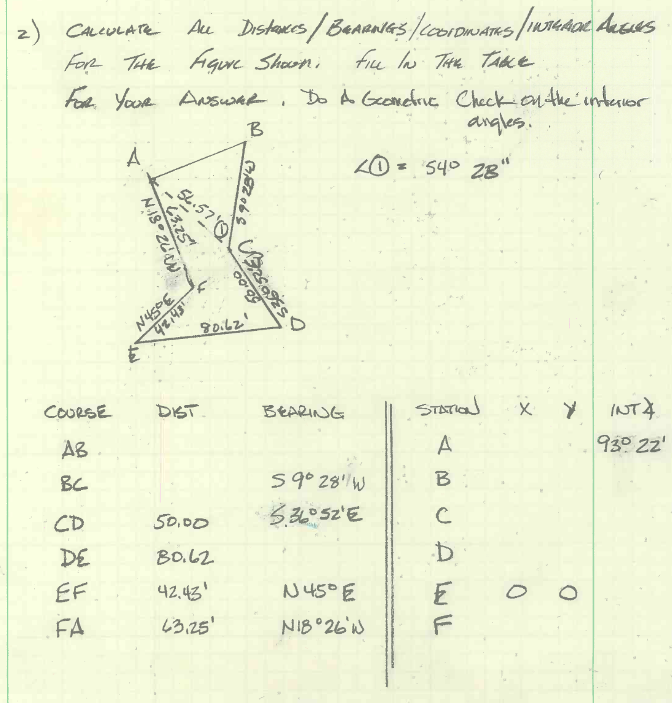 2) CALCULATE ALL Distances/BEARINGS/COORDINATES/INTERIOR ANGLES
FOR THE Figure Shown. FILL IN THE TABLE
FOR YOUR ANSWER. Do A Geometric Check on the interior
angles.
∠① = 54° 28"
A
B
56.57'
①
S 9° 28' W
63.25'
N 18° 26' W
C
50.00
F
N 45° E
42.43'
80.62'
D
E
COURSE DIST BEARING STATION X Y INT ∡
AB A 93° 22'
BC S 9° 28' W B
CD 50.00 S 36° 52' E C
DE 80.62 D
EF 42.43' N 45° E E 0 0
FA 63.25' N 18° 26' W F